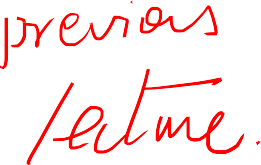 previous
lecture.